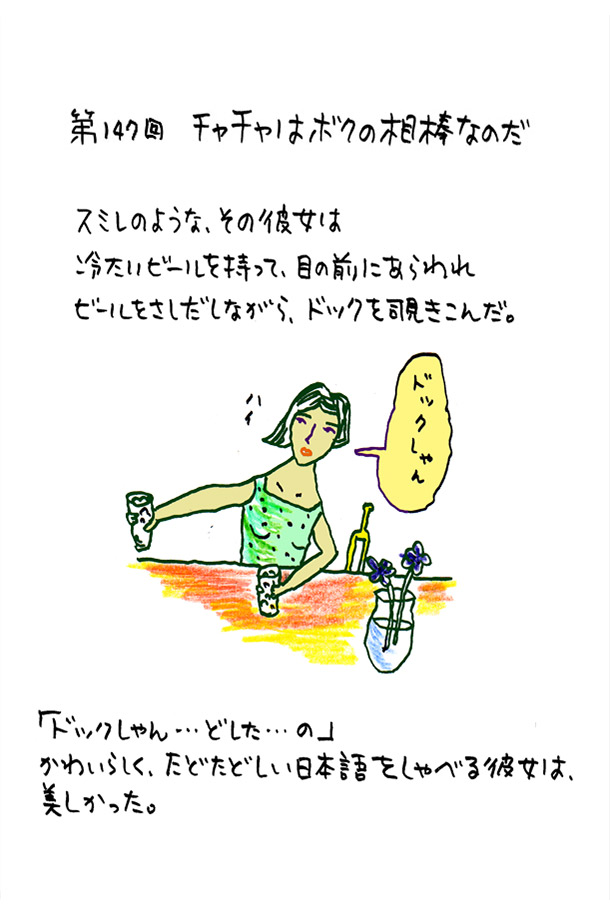 第147回 チャチャはボクの相棒なのだ
スミレのような、その彼女は
冷たいビールを持って、目の前にあらわれ
ビールをさしだしながら、ドックを覗きこんだ。
ハイ
ドックしゃん
「ドックしゃん…どした…の」
かわいらしく、たどたどしい日本語をしゃべる彼女は、
美しかった。